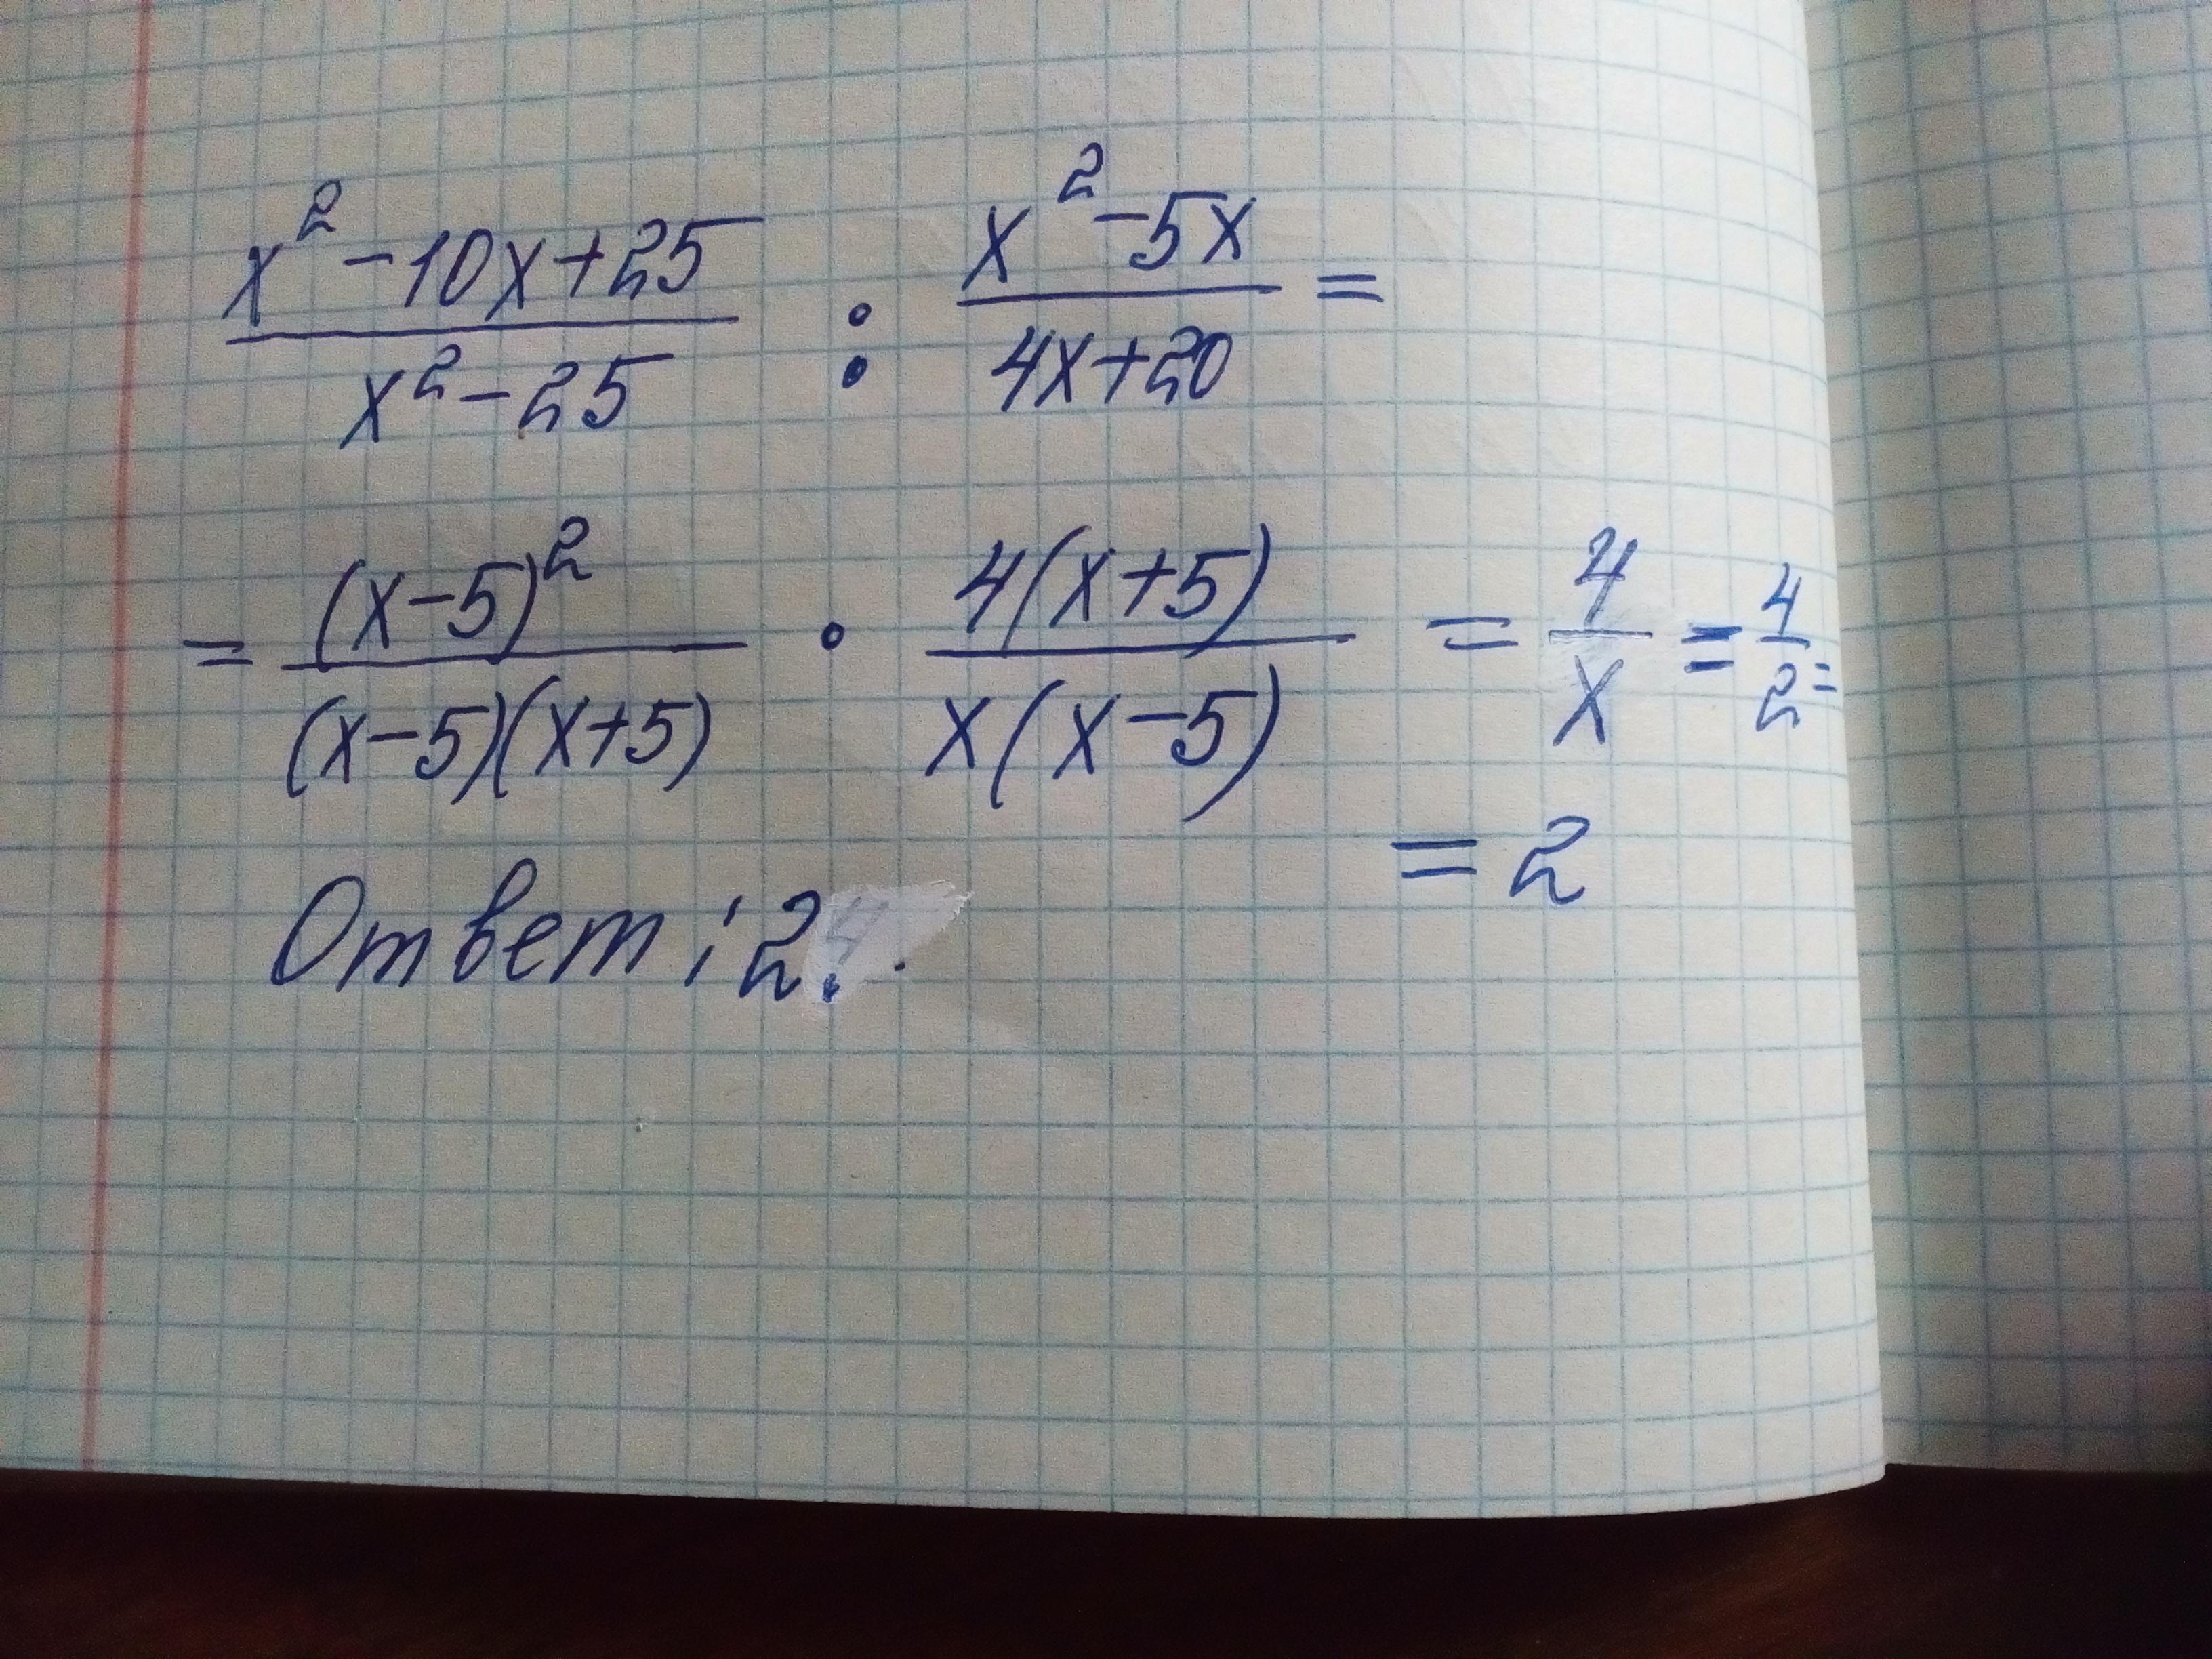 x² - 10x + 25 / x² - 25 : x² - 5x / 4x + 20 =
= (x - 5)² / (x - 5)(x + 5) · 4(x + 5) / x(x - 5) = 4 / x = 4 / 2 =
= 2
Ответ: 2.